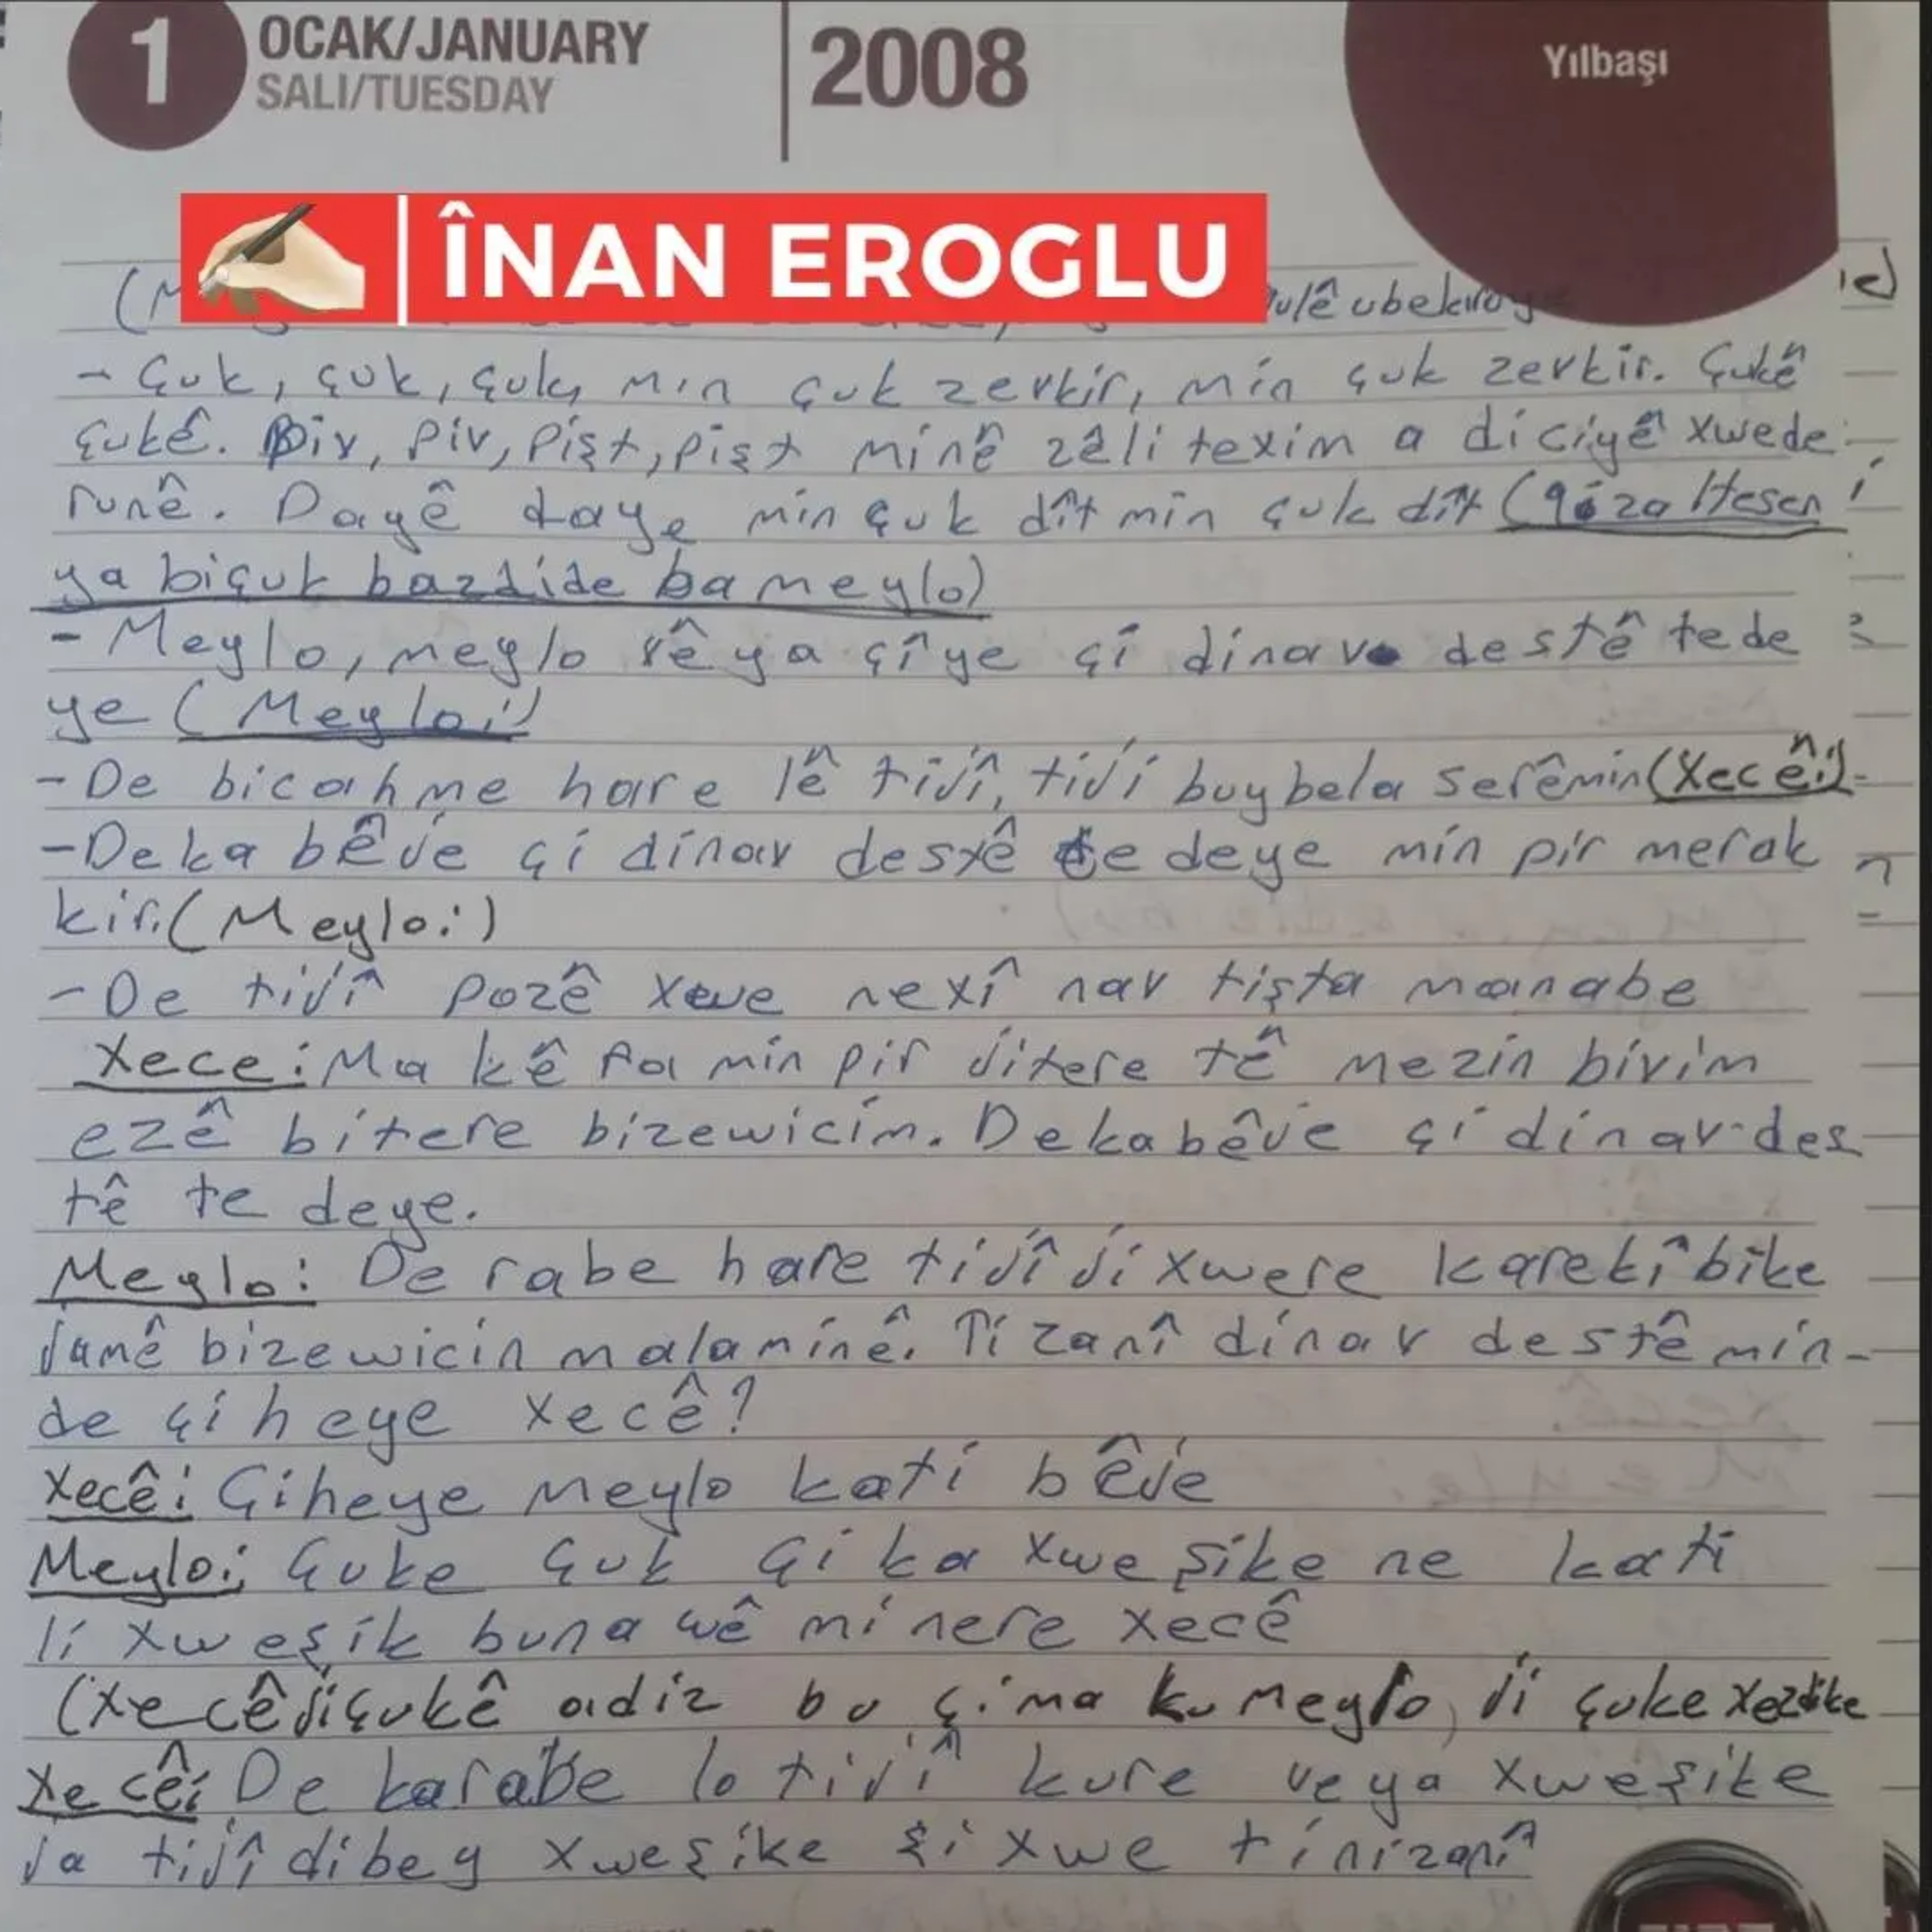 1 OCAK/JANUARY 2008 Yılbaşı
SALI/TUESDAY
ÎNAN EROGLU
- Çuk, çuk, çuk, min çuk zevkir, min çuk zevkir. Çukê
çukê. Piv, piv, pişt, pişt minê zêli texim a diciyê xwede
runê. Dayê daye min çuk dît min çuk dît (qiza Hesen
ya biçuk bazdide ba meylo)
- Meylo, meylo rêya çîye çi dinav destê tede
ye (Meylo:)
- De bicahme hare lê tijî, tiji buybela serêmin (Xecê:)
- Deka bêje çi dinav destê te deye min pir merak
kir. (Meylo:)
- De tijî pozê xwe nexî nav tişta manabe
Xece: Ma kê ra min pir jitere tê mezin bivim
ezê bitere bizewicim. Dekabêje çi dinav des
tê te deye.
Meylo: De rabe hare tijî ji xwere karekî bike
jamê bizewicin malaminê. Ti zanî dinav destê min-
de çiheye xecê?
Xecê: Çiheye meylo kati bêje
Meylo: Çuke çuk çi ka xweşike ne kati
li xweşik buna wê mi nere xecê
(Xecê ji çukê adiz bu çima ku meylo, ji çuke xezdike
Xecê: De karabe lo tijî kure veya xweşike
ja tijî dibey xweşike şi xwe tinizanî